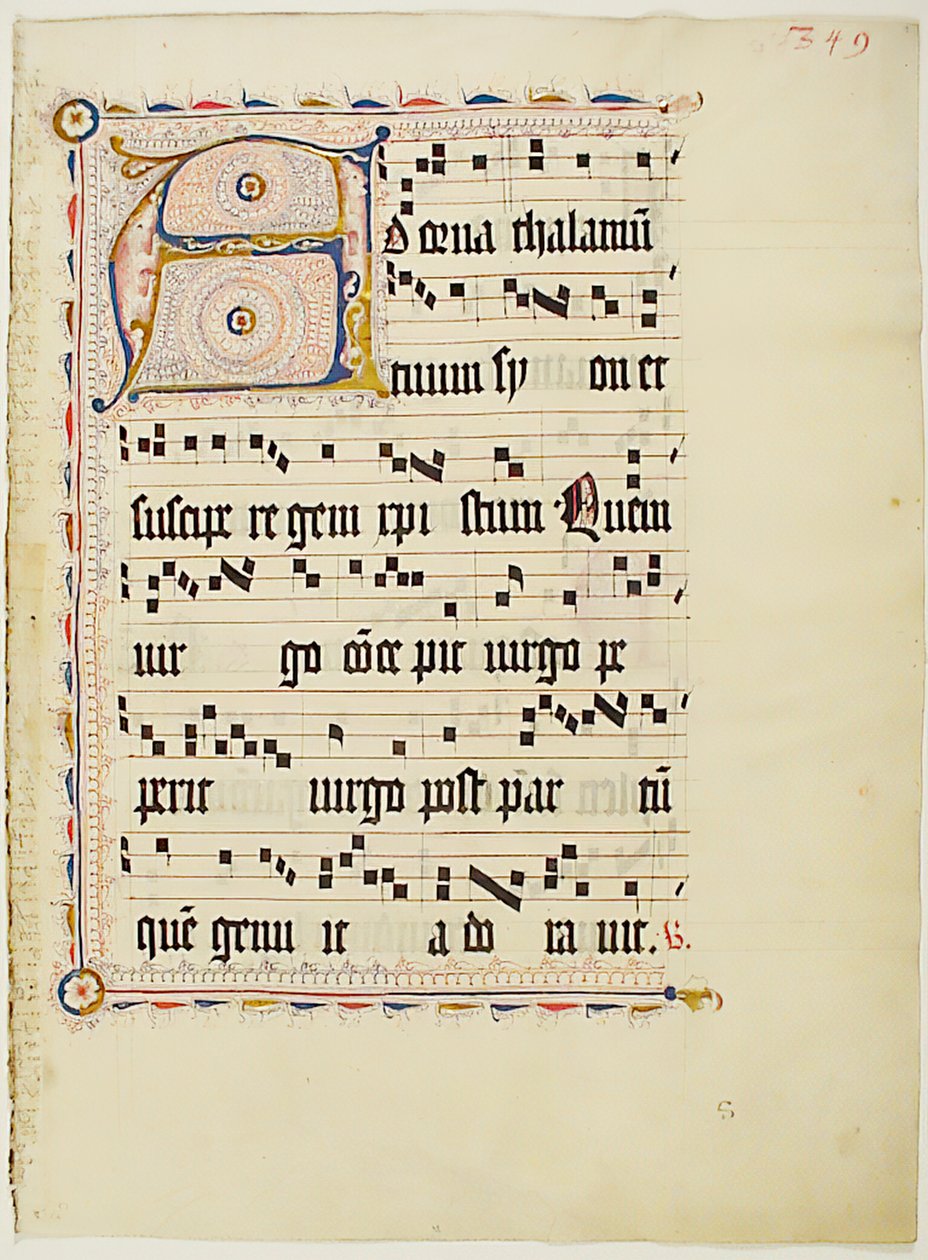 349
Adorna thalamū
tuum sy on et
suscipe re gem xpi stum Quem
uir go cōce pit uirgo pe
perit uirgo post par tū
quē genu it a do ra uit. V.
S